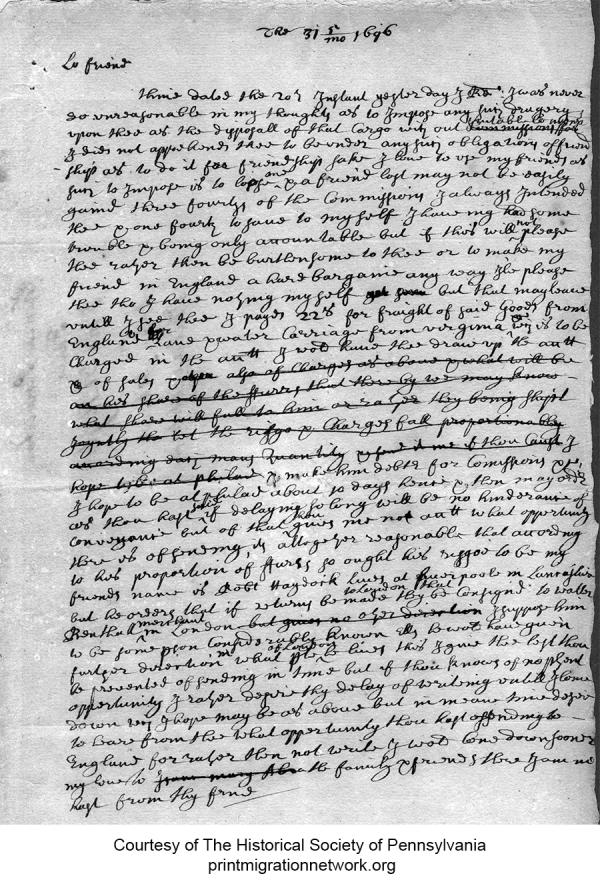 The 31 5/mo 1696
Lo friend
thine dated the 20th Instant yesterday I Recd. I was never
so unreasonable in my thoughts as to Impose any such drugery
upon thee as the dysposall of that Cargo with out suitable
I did not apprehend thee to be under any such obligation of friend
ship as to do it for friendship sake I love to use my friends as
such to Impose is to lose one & a friend lost may not be easily
gaind three fourths of the Commissions I always Intended
thee & one fourth to have to my self I have ing had some
trouble & being only accountable but if this will not please
thee rather then be burthensome to thee or to make my
friend in England a hard bargaine any way Ile please
thee tho I have nothing my self but that may leave
untill I see thee I payed 22s for fraight of said Goods from
England Land & water Carriage from verginia is to be
Charged in the acctt I wod have thee draw up the acctt
of sales also of Charges as above & what will be
his share of the furrs that there by we may know
what share will fall to him or rather they being shipt
Joyntly tho let the risgo & Charges fall proportionably
according each mans Quantity & send it me if thou Canst I
hope to be at philad & make him debtr for Comissions &c,
I hope to be at philad about 10 days hence & then may order
as thou hast if delaying so long will be no hinderance of
Conveyance but of that thou gives me not acctt what oppertunity
there is of sending, its alltogether reasonable that according
to his proportion of furrs so ought his risgoe to be my
friends name is Robt Haydock lives at Leverpoole in Lancashire
but he orders that if returns be made to London that they be Consignd to walter
Benthall merchant in London but gives no other direction I suppose him
to be some pson Considerably known its have given
further direction in what pt of London he lives this I give thee lest thou
be prevented of sending in time but if thou knows of no psent
oppertunity I rather desire thy delay of writeing untill I Come
down wch I hope may be as above but in meane time desire
to heare from thee what oppertunity thou hast of sending to
England for rather then not write I wod Come down sooner
my love to thee family & friends there I am in
hast from thy frnd
Courtesy of The Historical Society of Pennsylvania
printmigrationnetwork.org